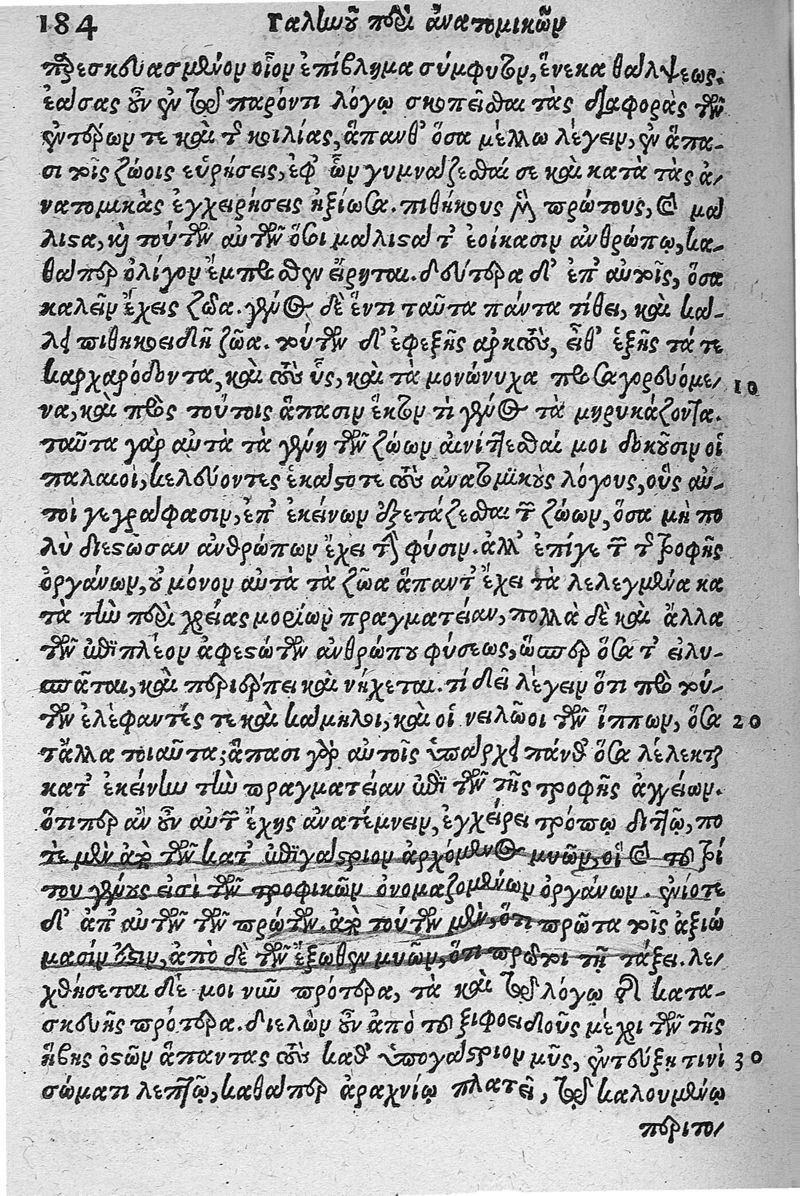 184 Γαληνοῦ περὶ ἀνατομικῶν
παρεσκευασμένον οἷον ἐπίβλημα σύμφυτον, ἕνεκα θάλψεως.
ἐάσας οὖν ἐν τῷ παρόντι λόγῳ σκοπεῖσθαι τὰς διαφορὰς τῶν
ἐντέρων τε καὶ τῆς κοιλίας, ἅπανθ' ὅσα μέλλω λέγειν, ἐν ἅπα-
σι τοῖς ζώοις εὑρήσεις, ἐφ' ὧν γυμνάζεσθαί σε καὶ κατὰ τὰς ἀ-
νατομικὰς ἐγχειρήσεις ἠξίωσα. πιθήκους μὲν πρώτους, καὶ μά
λιστα, καὶ τούτων αὐτῶν ὅσοι μάλιστά τ' ἐοίκασιν ἀνθρώπῳ, κα-
θάπερ ὀλίγον ἔμπροσθεν εἴρηται. δεύτερα δ' ἐπ' αὐτοῖς, ὅσα
καλεῖν ἔχεις ζῶα. γένος δὲ ἕν τι ταῦτα πάντα τίθει, καὶ κάλ-
λει πιθηκοειδῆ ζῶα. τούτων δ' ἐφεξῆς ἄρκτους, εἶθ' ἑξῆς τά τε
καρχαρόδοντα, καὶ τοὺς ὗς, καὶ τὰ μονώνυχα προσαγορευόμε-
10
να, καὶ πρὸς τούτοις ἅπασιν ἕκτον τὶ γένος τὰ μηρυκάζοντα.
ταῦτα γὰρ αὐτὰ τὰ γένη τῶν ζώων αἰνίττεσθαί μοι δοκοῦσιν οἱ
παλαιοὶ, κελεύοντες ἑκάστοτε τοὺς ἀνατομικοὺς λόγους, οὓς αὐ-
τοὶ γεγράφασιν, ἐπ' ἐκείνων ἐξετάζεσθαι τῶν ζώων, ὅσα μὴ πο
λὺ διεστῶσαν ἀνθρώπων ἔχει τὴν φύσιν. ἀλλ' ἐπί γε τῶν τῆς τροφῆς
ὀργάνων, οὐ μόνον αὐτὰ τὰ ζῶα ἅπαντ' ἔχει τὰ λελεγμένα κα
τὰ τὴν περὶ χρείας μορίων πραγματείαν, πολλὰ δὲ καὶ ἄλλα
τῶν ἐπὶ πλέον ἀφεστώτων ἀνθρώπου φύσεως, ὥσπερ ὅσα τ' εἰλυ-
σπᾶται, καὶ περιέρπει καὶ νήχεται. τί δεῖ λέγειν ὅτι πρὸ τού-
των ἐλέφαντές τε καὶ κάμηλοι, καὶ οἱ νειλῶοι τῶν ἵππων, ὅσα
20
τ' ἄλλα τοιαῦτα; ἅπασι γὰρ αὐτοῖς ὑπάρχει πάνθ' ὅσα λέλεκται
κατ' ἐκείνην τὴν πραγματείαν ἐπὶ τῶν τῆς τροφῆς ἀγγείων.
ὅτιπερ ἂν οὖν αὐτῶν ἔχῃς ἀνατέμνειν, ἐγχείρει τρόπῳ διττῷ, πο
τὲ μὲν ἀπὸ τῶν κατ' ἐπιγάστριον ἀρχόμενος μυῶν, οἳ καὶ τοῦ τρί
του γένους εἰσὶ τῶν τροφικῶν ὀνομαζομένων ὀργάνων. ἐνίοτε
δ' ἀπ' αὐτῶν τῶν πρώτων. ἀπὸ τούτων μὲν, ὅτι πρῶτα τοῖς ἀξιώ
μασίν ἐστιν, ἀπὸ δὲ τῶν ἔξωθεν μυῶν, ὅτι πρῶτοι τῇ τάξει. λε-
χθήσεται δέ μοι νῦν πρότερα, τὰ καὶ τῷ λόγῳ τῆς κατα-
σκευῆς πρότερα. διελὼν οὖν ἀπὸ τοῦ ξιφοειδοῦς μέχρι τῶν τῆς
ἥβης ὀστῶν ἅπαντας τοὺς καθ' ὑπογάστριον μῦς, ἐντεύξῃ τινὶ
30
σώματι λεπτῷ, καθάπερ ἀραχνίῳ πλατεῖ, τῷ καλουμένῳ
περιτο-